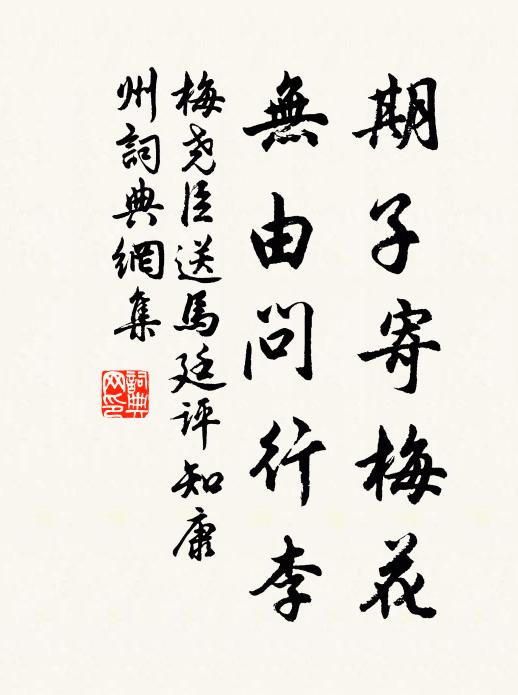 期子寄梅花
無由問行李
梅堯臣送馬廷評知康
州詞典網集
詞典
网印